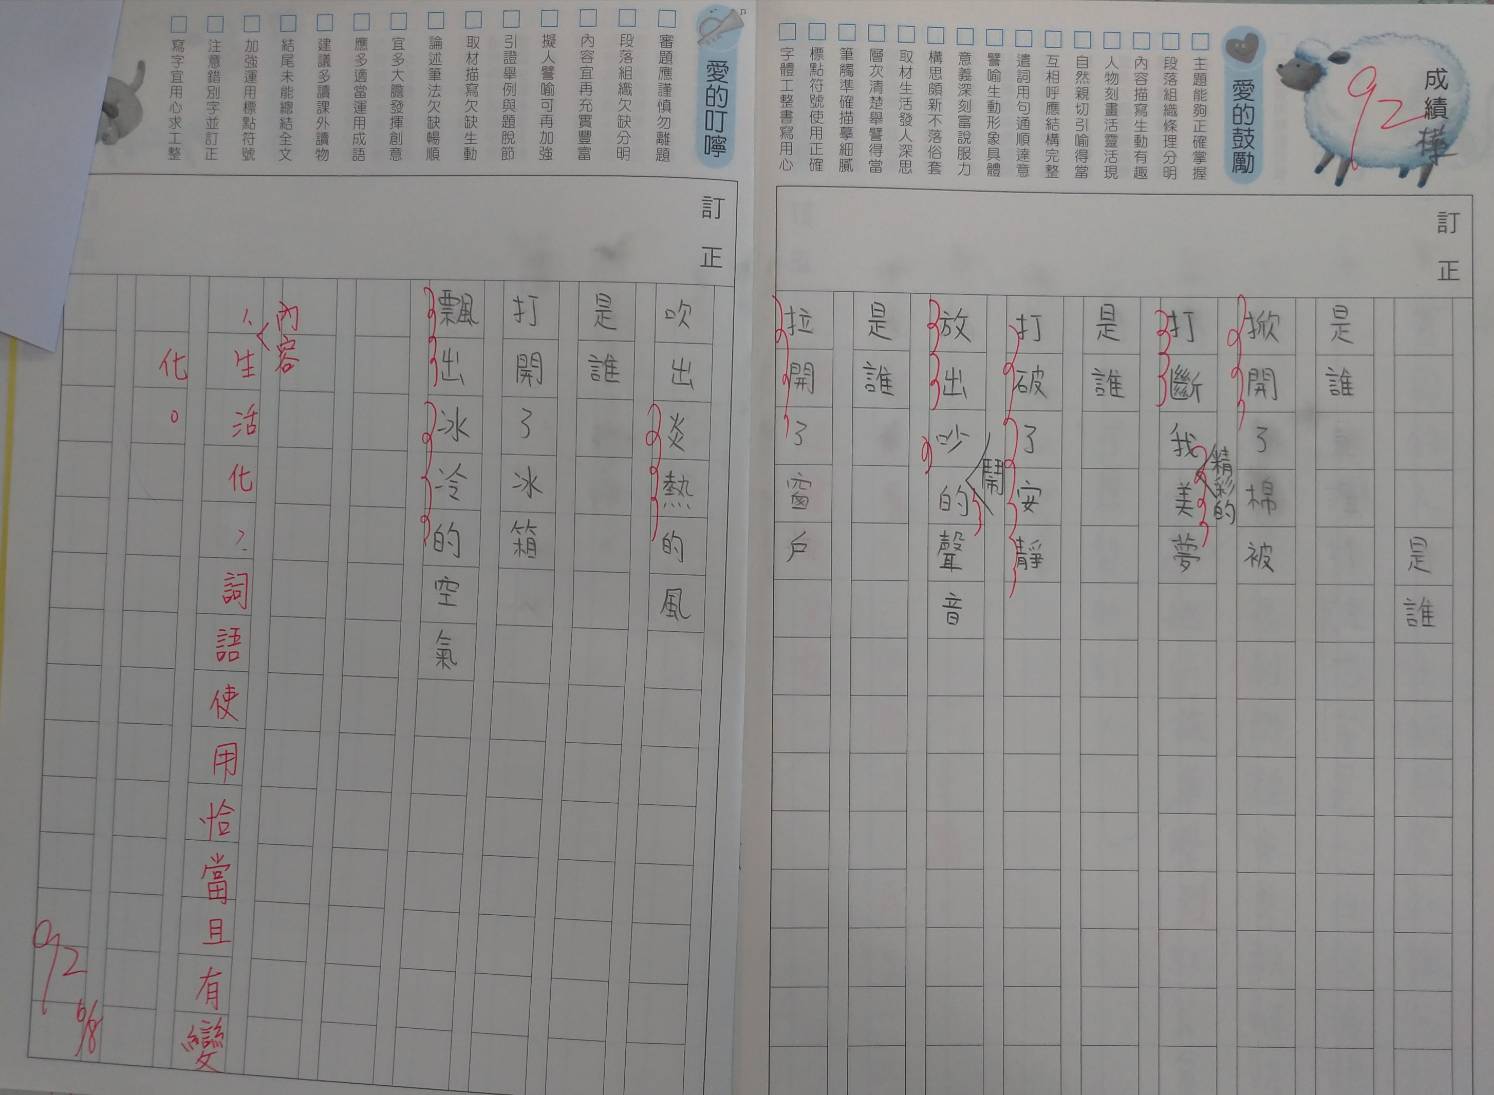 成績
92
樺
愛的鼓勵
主題能夠正確掌握
段落組織條理分明
內容描寫生動有趣
人物刻畫活靈活現
自然親切引喻得當
互相呼應結構完整
遣詞用句通順達意
譬喻生動形象具體
意義深刻富說服力
構思頗新不落俗套
取材生活發人深思
層次清楚舉譬得當
筆觸準確描摹細膩
標點符號使用正確
字體工整書寫用心
訂正
是誰
是誰
掀開了棉被
打斷我精彩的美夢
是誰
打破了安靜
放出吵鬧的聲音
是誰
拉開了窗戶
愛的叮嚀
審題應謹慎勿離題
段落組織欠缺分明
內容宜再充實豐富
擬人譬喻可再加強
引證舉例與題脫節
取材描寫欠缺生動
論述筆法欠缺暢順
宜多大膽發揮創意
應多適當運用成語
建議多讀課外讀物
結尾未能總結全文
加強運用標點符號
注意錯別字並訂正
寫字宜用心求工整
訂正
吹出炎熱的風
是誰
打開了冰箱
飄出冰冷的空氣
1.內容生活化2.詞語使用恰當且有變
化。
92
6/8